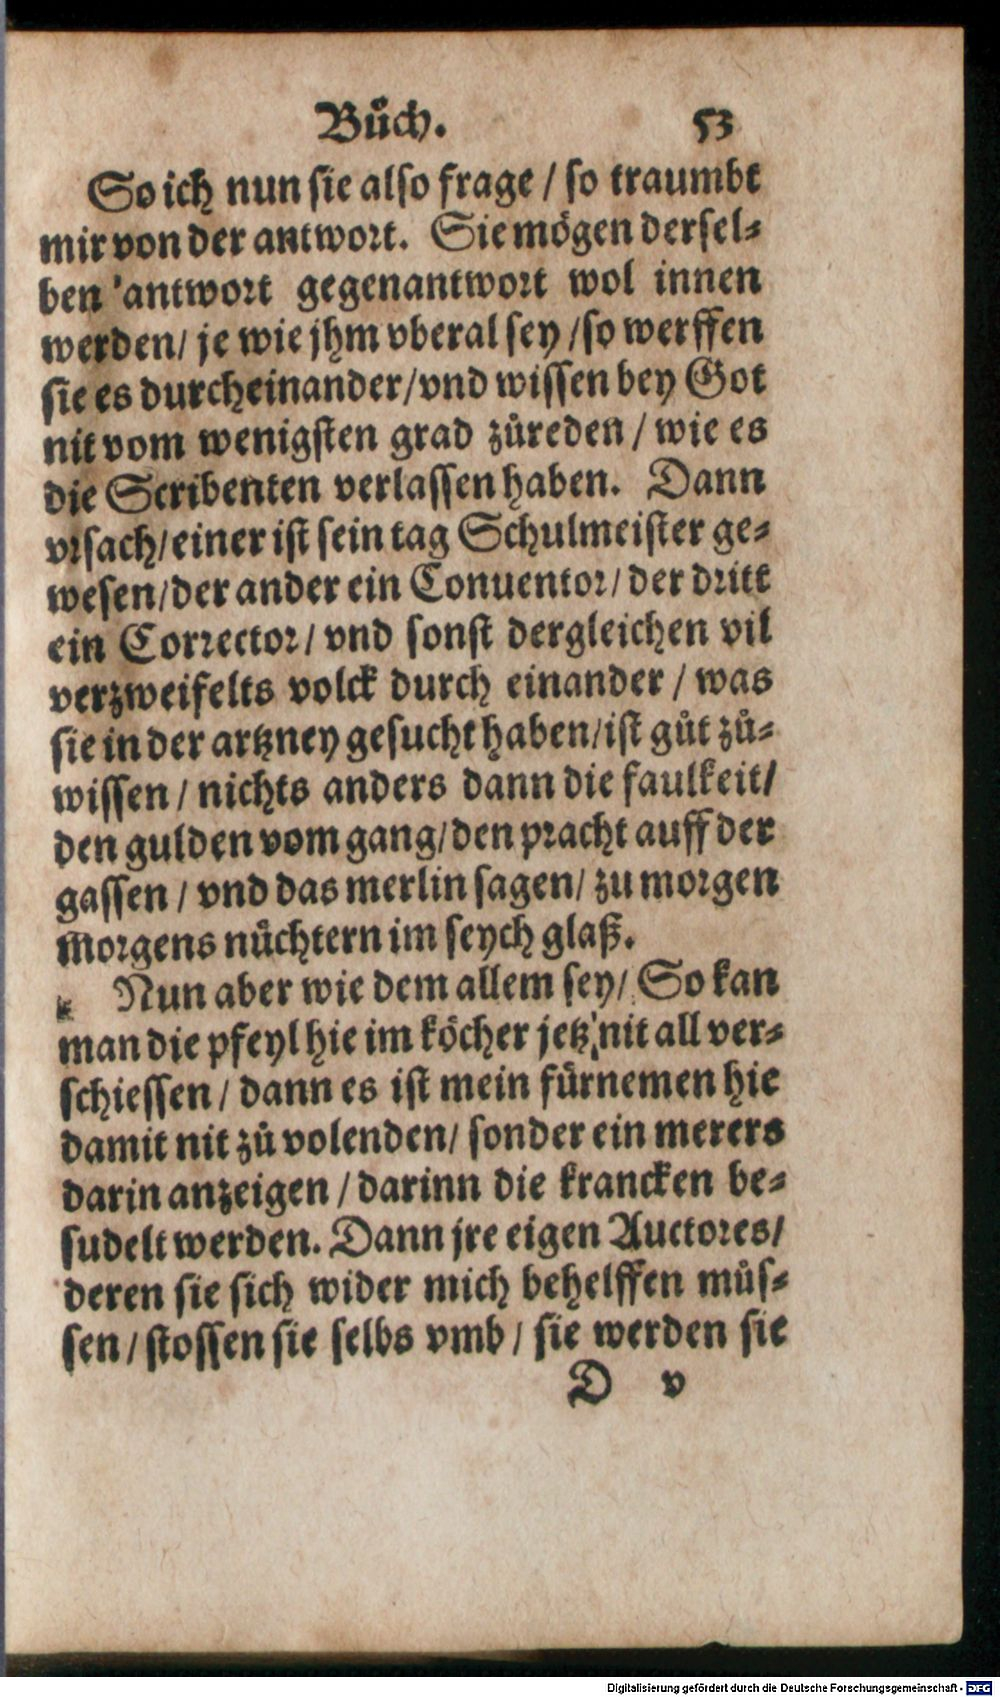 Bůch. 53
So ich nun sie also frage / so traumbt
mir von der antwort. Sie mögen dersel⸗
ben 'antwort gegenantwort wol innen
werden / je wie jhm vberal sey / so werffen
sie es durcheinander / vnd wissen bey Got
nit vom wenigsten grad zůreden / wie es
die Scribenten verlassen haben. Dann
vrsach / einer ist sein tag Schulmeister ge⸗
wesen / der ander ein Conuentor / der dritt
ein Corrector / vnd sonst dergleichen vil
verzweifelts volck durch einander / was
sie in der artzney gesucht haben / ist gůt zů⸗
wissen / nichts anders dann die faulkeit /
den gulden vom gang / den pracht auff der
gassen / vnd das merlin sagen / zu morgen
morgens nüchtern im seych glaß.
Nun aber wie dem allem sey / So kan
man die pfeyl hie im köcher jetz nit all ver⸗
schiessen / dann es ist mein fürnemen hie
damit nit zů volenden / sonder ein merers
darin anzeigen / darinn die krancken be⸗
sudelt werden. Dann jre eigen Auctores /
deren sie sich wider mich behelffen můs⸗
sen / stossen sie selbs vmb / sie werden sie
D v
Digitalisierung gefördert durch die Deutsche Forschungsgemeinschaft - DFG